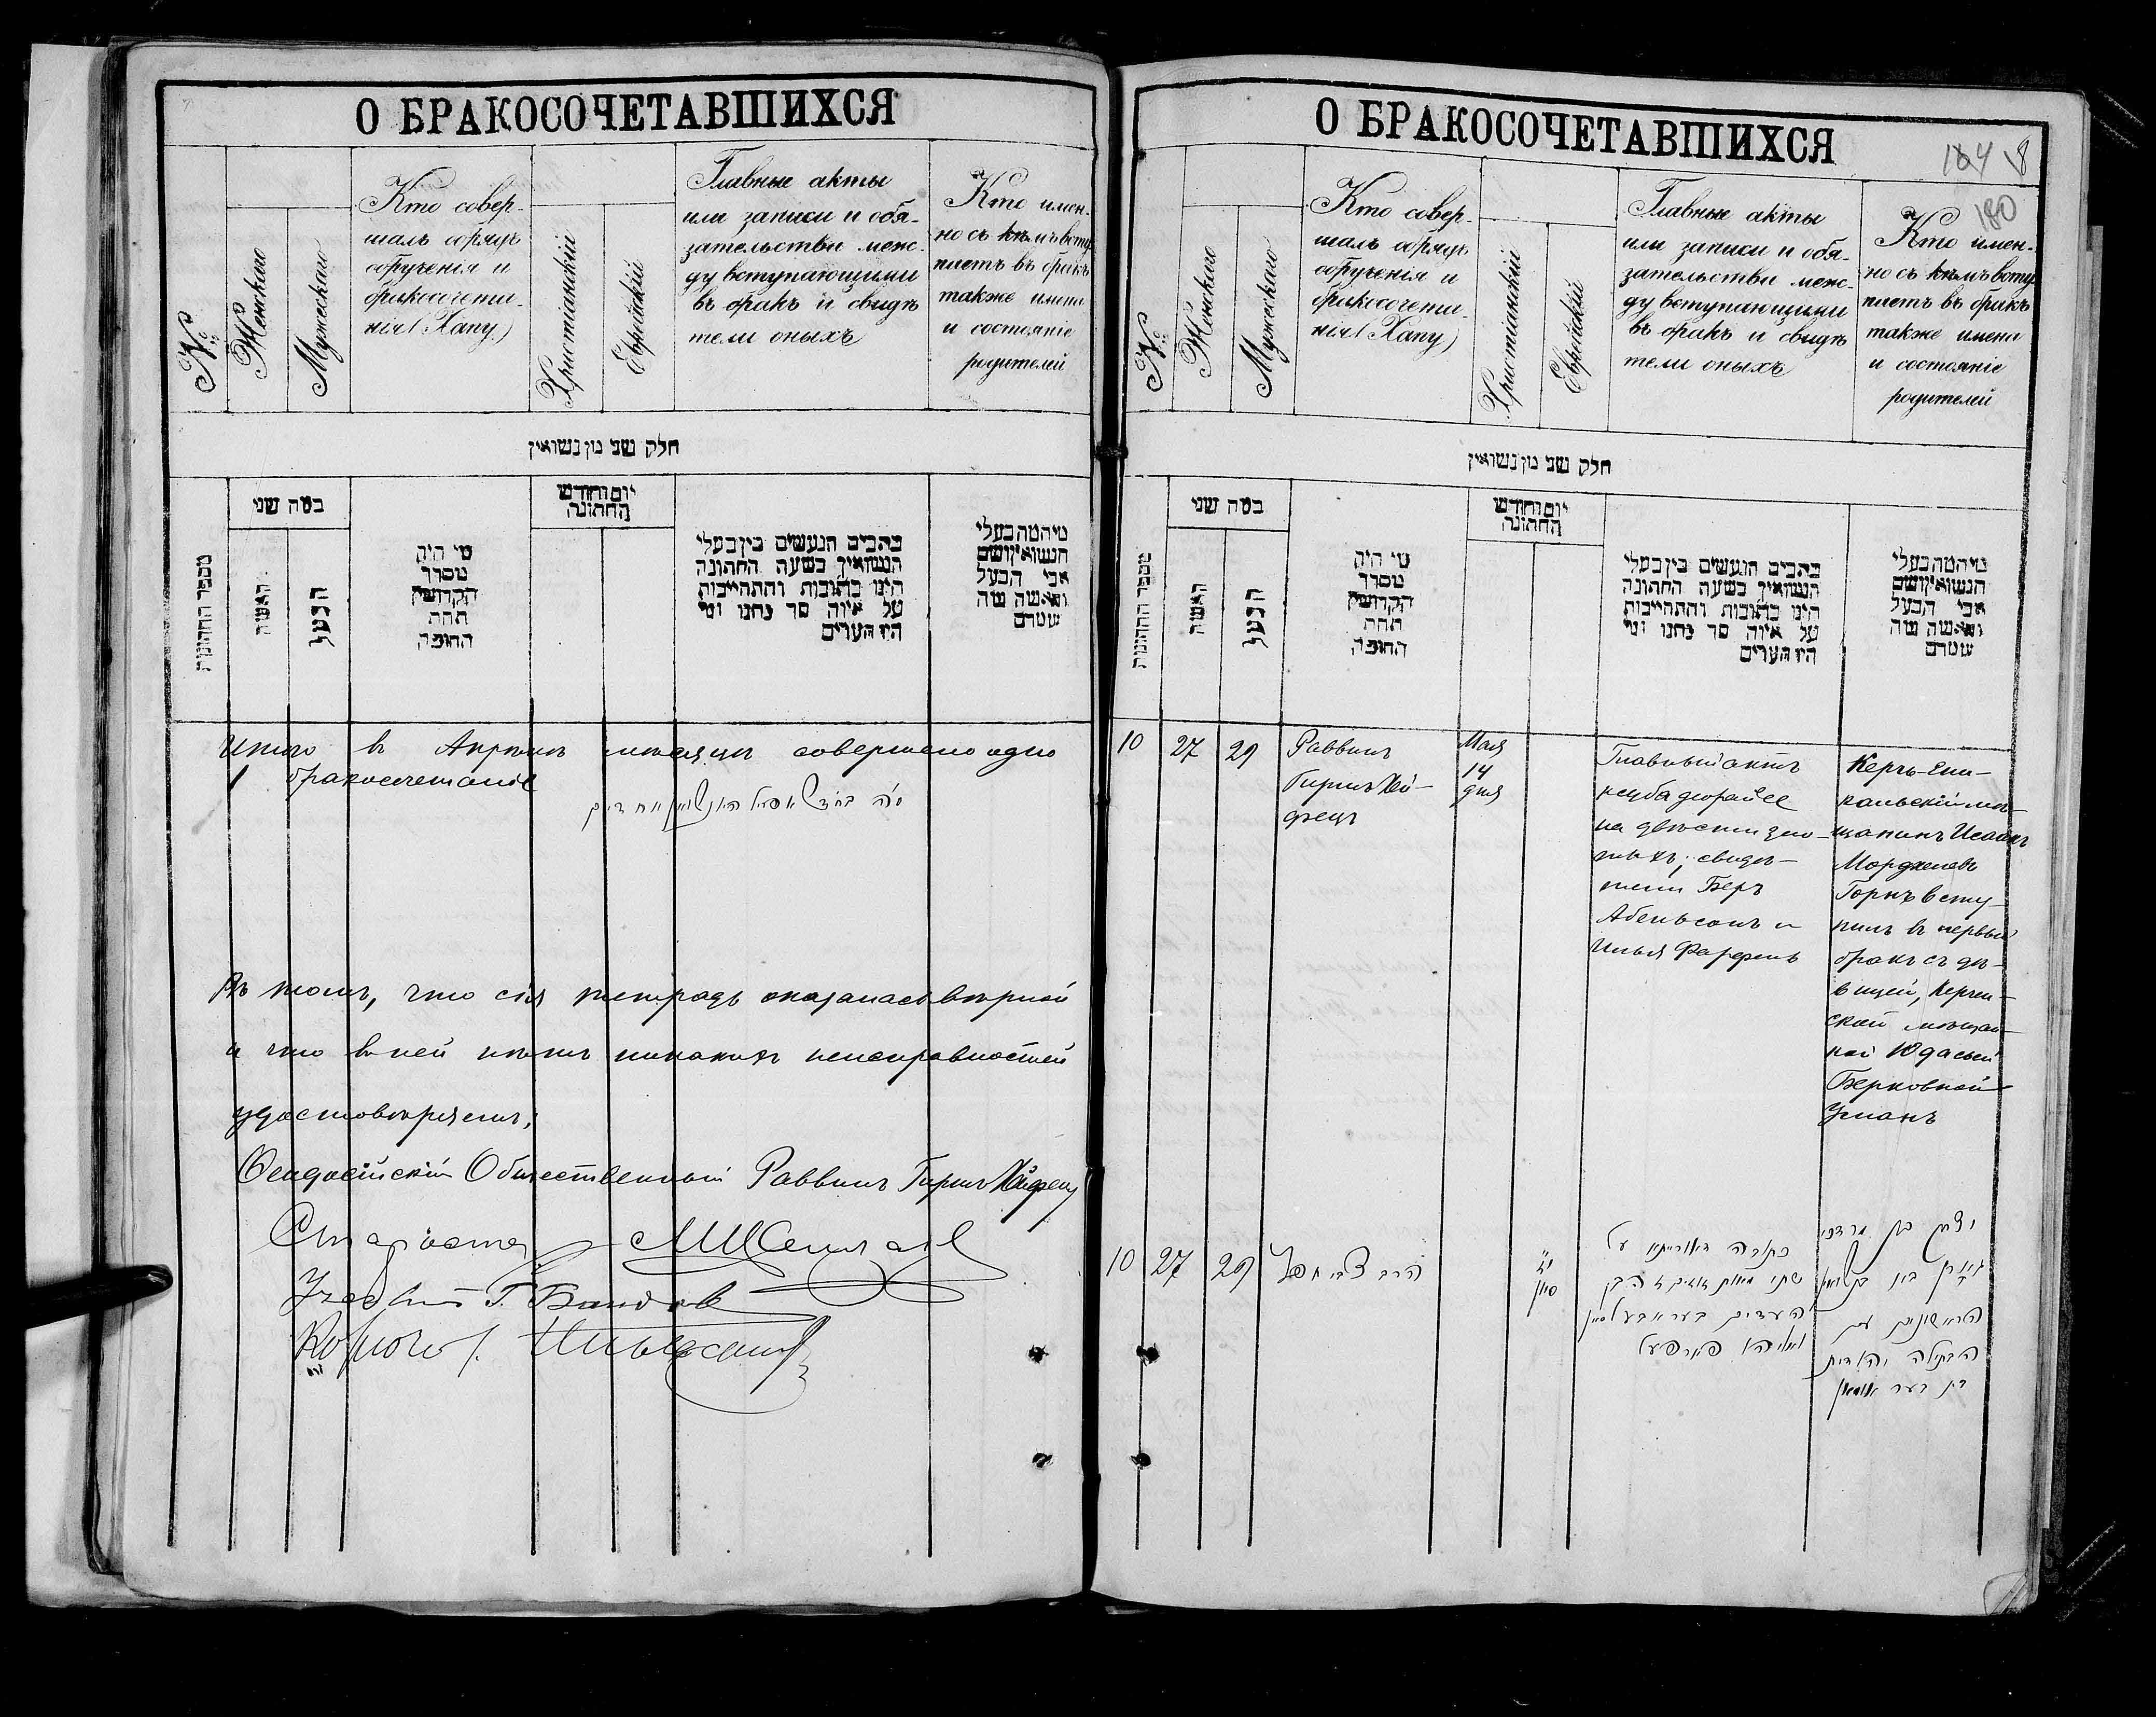 О БРАКОСОЧЕТАВШИХСЯ
№
Женскаго
Мужескаго
Кто совер-
шалъ обрядъ
обрученія и
бракосочета-
нія (Хапу)
Христіанскій
Еврейскій
Главные акты
или записи и обя-
зательства меж-
ду вступающими
въ бракъ и свидѣ
тели оныхъ
Кто имен-
но съ кѣмъ всту
паетъ въ бракъ
также имена
и состояніе
родителей
חלק שני מן נשואין
מספר החתונות
במה שני
האשה
הבעל
מי היה
מסדר
הקדושין
תחת
החופה
יום וחודש
החתונה
כתבים הנעשים בין בעלי
הנשואין בשעה החתונה
הינו כתובות והתחייבות
על איזה סך נתנו ומי
היו העדים
מיהמה בעלי
הנשואין ושם
אבי הבעל
והאשה מה
שמרם
Итого в Апрѣлѣ мѣсяцѣ совершено одно
1 бракосочетаніе
В томъ, что сія тетрадь оказалась вѣрной
и что в ней нѣтъ никакихъ неисправностей
удостовѣряемъ:
Ѳеодосійскій Общественный Раввинъ Гиршъ Хайфецъ
Староста
О БРАКОСОЧЕТАВШИХСЯ
164 18
180
№
Женскаго
Мужескаго
Кто совер-
шалъ обрядъ
обрученія и
бракосочета-
нія (Хапу)
Христіанскій
Еврейскій
Главные акты
или записи и обя-
зательства меж-
ду вступающими
въ бракъ и свидѣ
тели оныхъ
Кто имен-
но съ кѣмъ всту
паетъ въ бракъ
также имена
и состояніе
родителей
חלק שני מן נשואין
מספר החתונות
במה שני
האשה
הבעל
מי היה
מסדר
הקדושין
תחת
החופה
יום וחודש
החתונה
כתבים הנעשים בין בעלי
הנשואין בשעה החתונה
הינו כתובות והתחייבות
על איזה סך נתנו ומי
היו העדים
מיהמה בעלי
הנשואין ושם
אבי הבעל
והאשה מה
שמרם
10
27
29
Раввинъ
Гиршъ Хай-
фецъ
Мая
14
дня
Главный актъ
ксуба деорайсе
на двѣсти зло-
тыхъ; свидѣ-
тели Беръ
Абельсонъ и
Илья Фарфель
Керчь-Ени-
кальскій мѣ-
щанинъ Исаакъ
Мордхелевъ
Горнъ всту-
пилъ в первый
бракъ съ дѣ-
вицей, Керчен-
ской мѣщан-
кой Юдасьей
Берковной
Уманъ
10
27
29
הרב צבי חפץ
יד
סיון
כתובה דאורייתא על
שתי מאות
העדים בער אבעלסאן
ואליהו פארפעל
יצחק בן מרדכי
הראשונים עם
הבתולה יהודית
בת בער אומאן